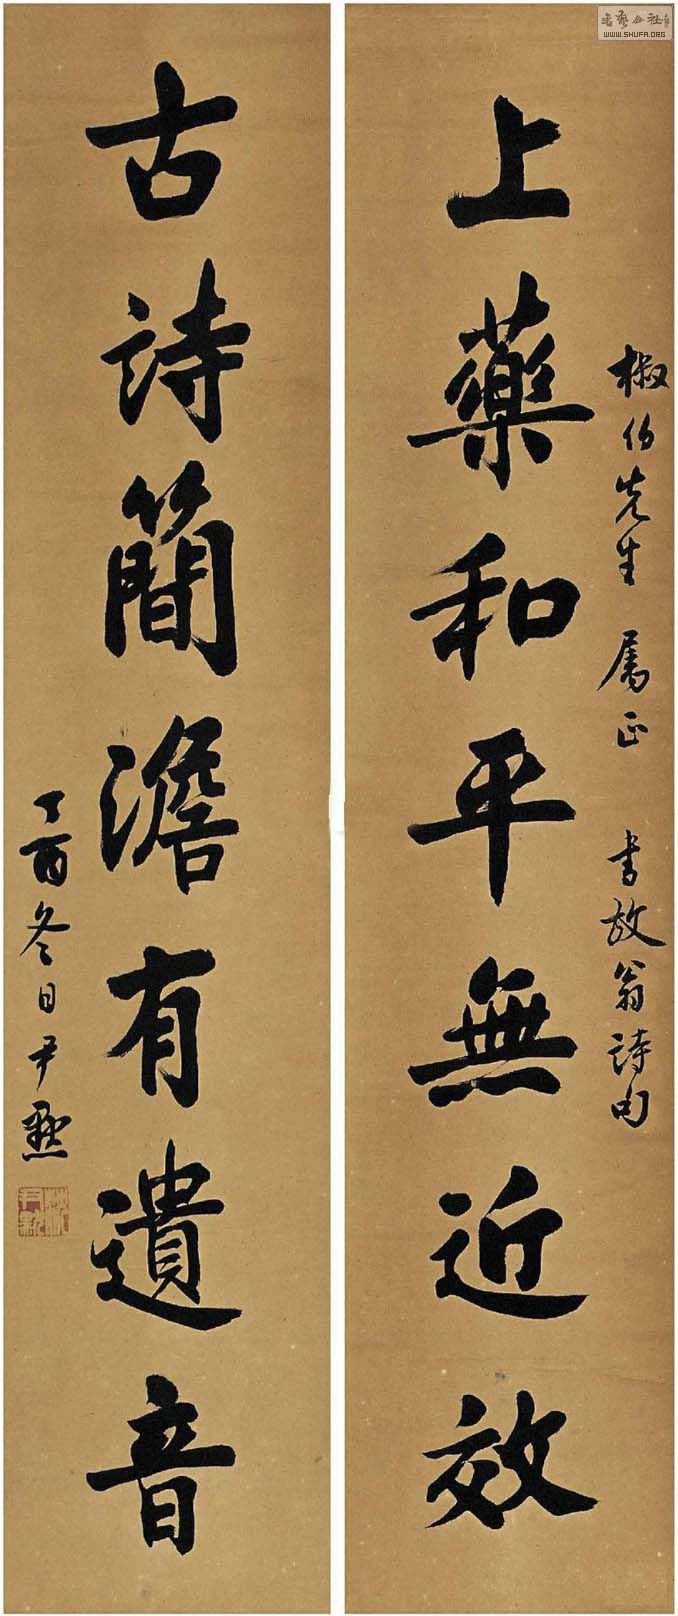 椒伯先生 屬正 書放翁詩句
上藥和平無近效
古詩簡澹有遺音
丁酉冬日尹默
WWW.SHUFA.ORG